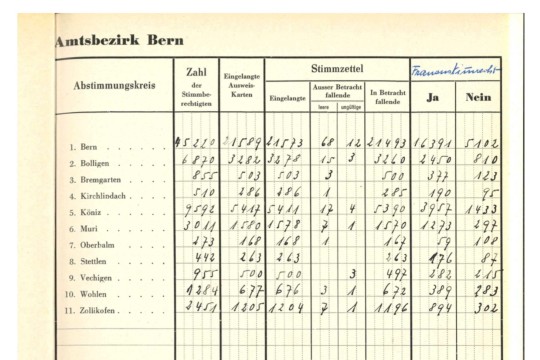 Amtsbezirk Bern
Abstimmungskreis
Zahl
der
Stimmbe-
rechtigten
Eingelangte
Ausweis-
Karten
Stimmzettel
Eingelangte
Ausser Betracht
fallende
leere ungültige
In Betracht
fallende
Frauenstimmrecht
Ja Nein
1. Bern . . . . . . 45220 21589 21573 68 12 21493 16391 5102
2. Bolligen . . . . . 6870 3282 3278 15 3 3260 2450 810
3. Bremgarten . . . . 855 503 503 3 500 377 123
4. Kirchlindach . . . . 510 286 286 1 285 190 95
5. Köniz . . . . . 9592 5417 5411 17 4 5390 3957 1433
6. Muri . . . . . . 3011 1580 1578 7 1 1570 1273 297
7. Oberbalm . . . . 273 168 168 1 167 59 108
8. Stettlen . . . . . 442 263 263 263 176 87
9. Vechigen . . . . . 955 500 500 3 497 282 215
10. Wohlen . . . . . 1284 677 676 3 1 672 389 283
11. Zollikofen . . . . . 2451 1205 1204 7 1 1196 894 302